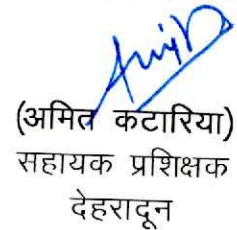 (अमित कटारिया)
सहायक प्रशिक्षक
देहरादून